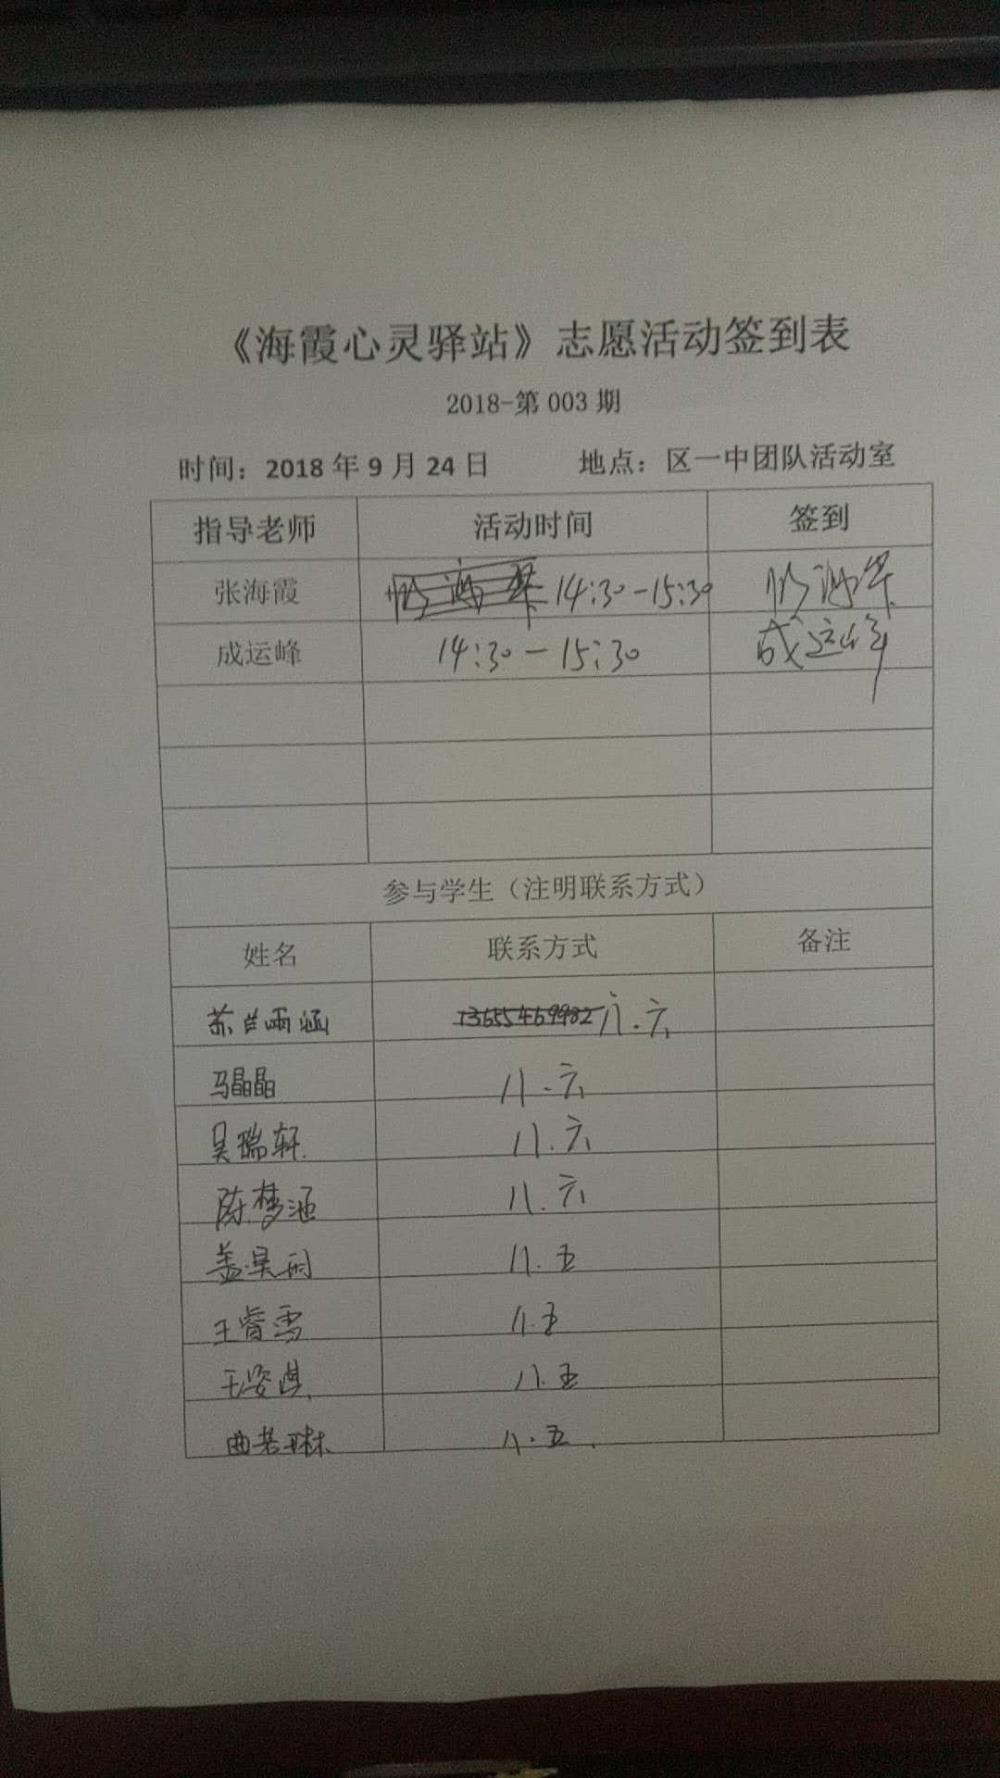 《海霞心灵驿站》志愿活动签到表
2018-第 003 期
时间：2018 年 9 月 24 日 地点：区一中团队活动室
指导老师 活动时间 签到
张海霞 14:30-15:30 张海霞
成运峰 14:30-15:30 成运峰
参与学生（注明联系方式）
姓名 联系方式 备注
苏兰雨涵 八.六
马晶晶 八.六
吴瑞轩 八.六
陈梦涵 八.六
盖昊雨 八.五
王睿雪 八.五
王姿淇 八.五
曲若琳 八.五